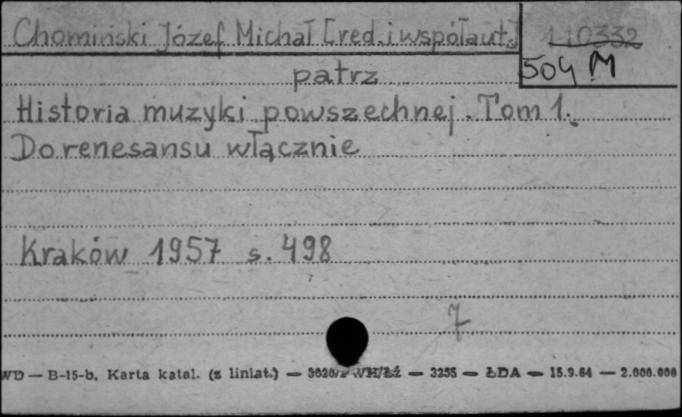 Chomiński Józef Michał [red. i współaut.] 110332
504 M
patrz
Historia muzyki powszechnej. Tom 1.
Do renesansu włącznie
Kraków 1957 s. 498
7
WD — B-15-b. Karta katal. (z liniat.) — WH/Łź — 3255 — ŁDA — 15.9.64 — 2.000.000